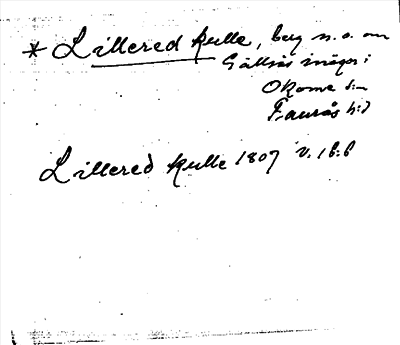 * Lillered kulle, berg n.o. om
Gällsås inägor i
Okome sn
Faurås hd
Lillered kulle 1807 v. 16:8